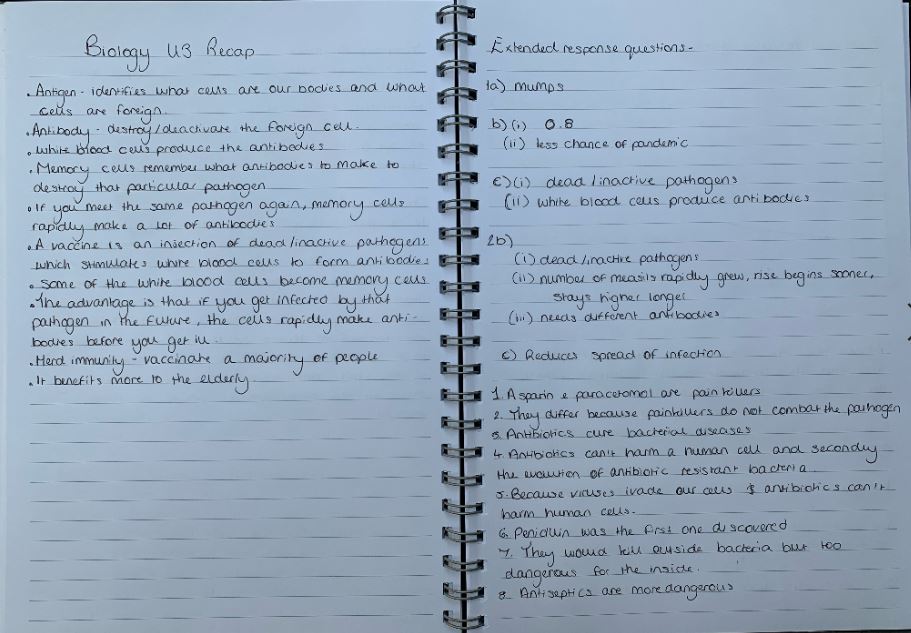 Biology U3 Recap
• Antigen - identifies what cells are our bodies and what
cells are foreign.
• Antibody - destroy/deactivate the foreign cell.
• White blood cells produce the antibodies
• Memory cells remember what antibodies to make to
destroy that particular pathogen
• If you meet the same pathogen again, memory cells
rapidly make a lot of antibodies
• A vaccine is an injection of dead/inactive pathogens
which stimulates white blood cells to form antibodies
• Some of the white blood cells become memory cells
• The advantage is that if you get infected by that
pathogen in the future, the cells rapidly make anti-
bodies before you get ill.
• Herd immunity - vaccinate a majority of people
• It benefits more to the elderly
Extended response questions-
1a) mumps
b) (i) 0.8
(ii) less chance of pandemic
c) (i) dead/inactive pathogens
(ii) white blood cells produce antibodies
2b)
(i) dead/inactive pathogens
(ii) number of measils rapidly grew, rise begins sooner,
stays higher longer
(iii) needs different antibodies
c) Reduces spread of infection
1. Asparin & paracetomol are pain killers
2. They differ because painkillers do not combat the pathogen
3. Antibiotics cure bacterial diseases
4. Antibiotics can't harm a human cell and secondly
the evolution of antibiotic resistant bacteria
5. Because viruses ivade our cells & antibiotics can't
harm human cells.
6. Penicillin was the first one discovered
7. They would kill outside bacteria but too
dangerous for the inside.
8. Antiseptics are more dangerous